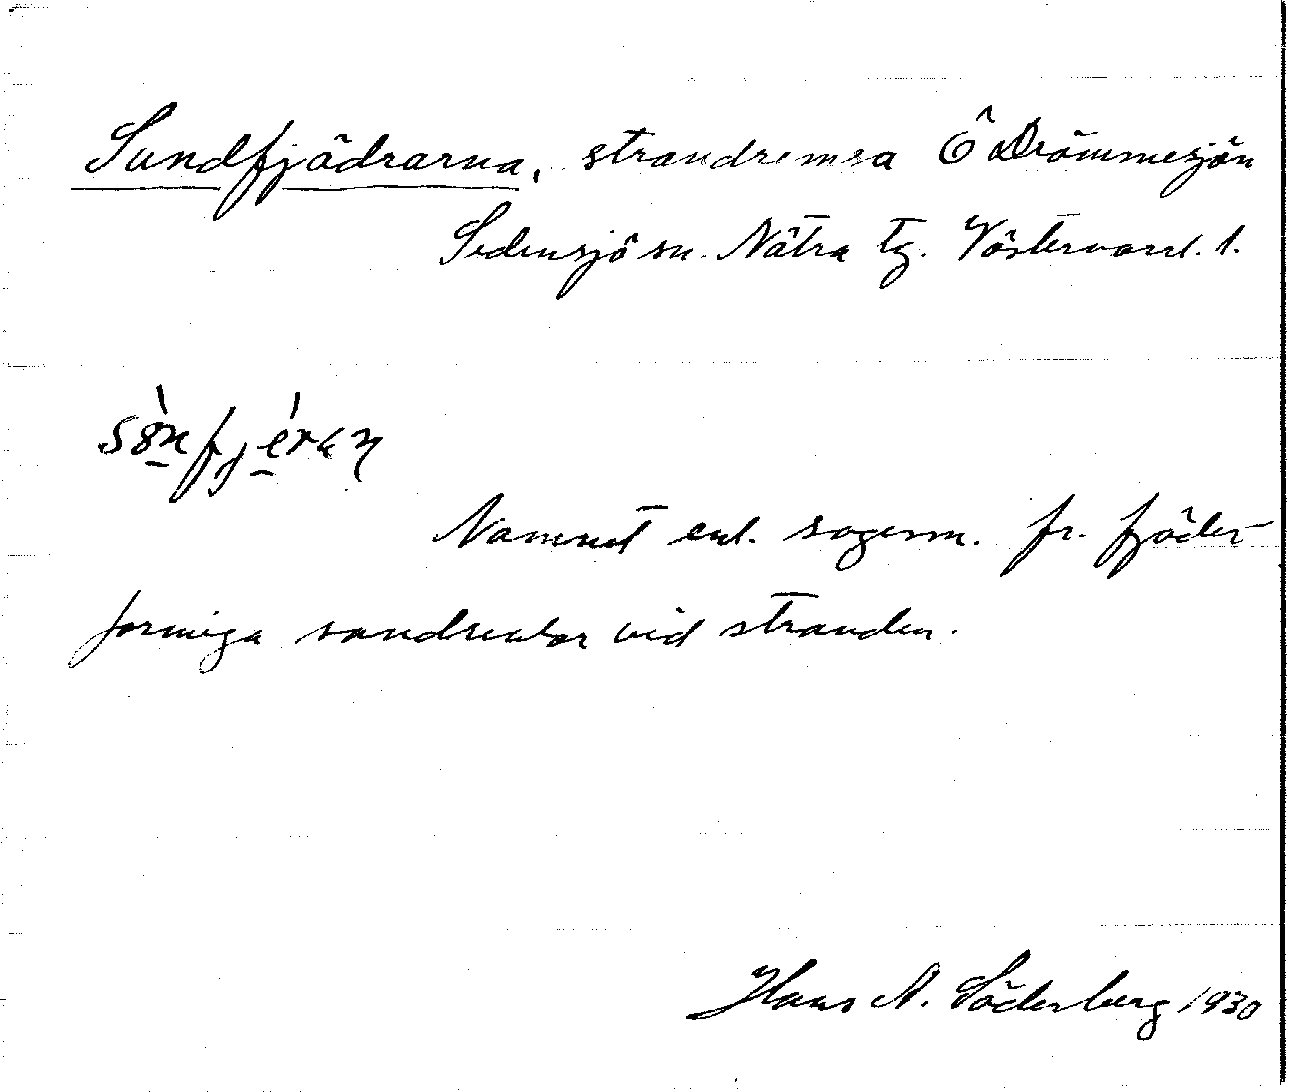 Sundfjädrarna, strandremsa Ö Drömmesjön
Sidensjö sn. Nätra tg. Västernorrl. l.
Namnet enl. sagesm. fr. fjäder-
formiga sandrevlar vid stranden.
Hans A. Söderberg 1930